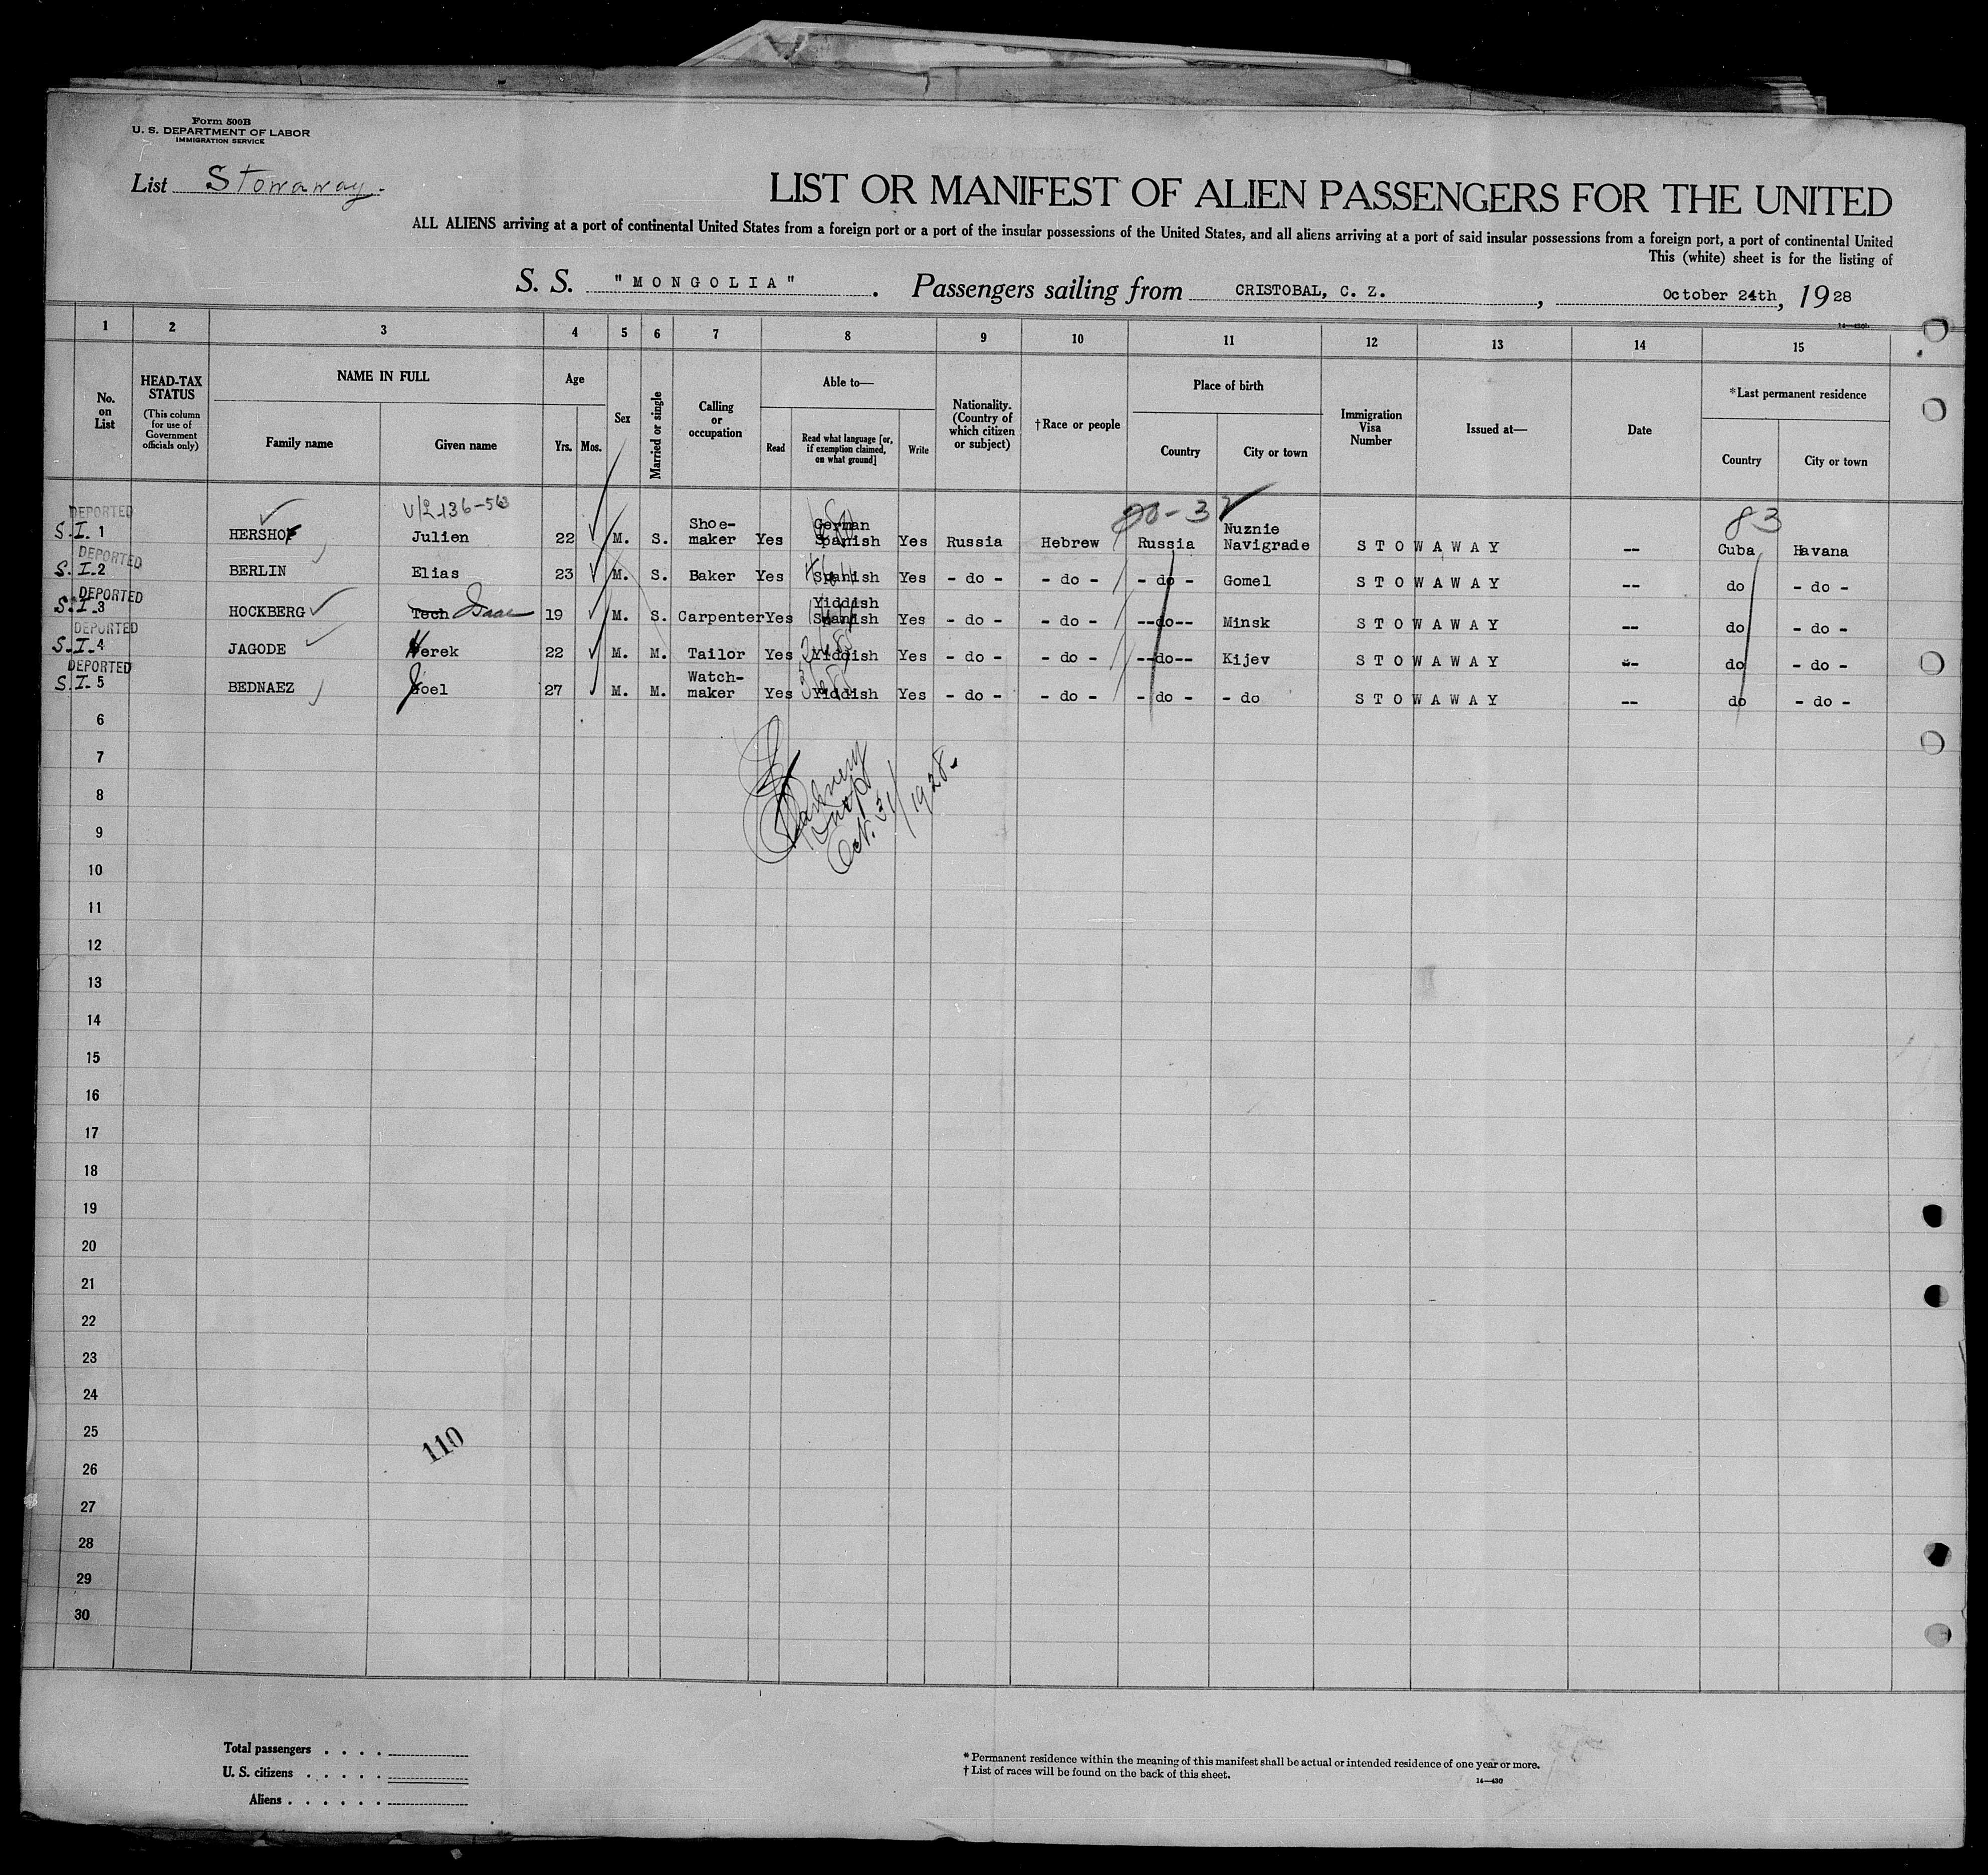 Form 500B
U. S. DEPARTMENT OF LABOR
IMMIGRATION SERVICE
List Stowaway.
LIST OR MANIFEST OF ALIEN PASSENGERS FOR THE UNITED
ALL ALIENS arriving at a port of continental United States from a foreign port or a port of the insular possessions of the United States, and all aliens arriving at a port of said insular possessions from a foreign port, a port of continental United
This (white) sheet is for the listing of
S. S. "MONGOLIA". Passengers sailing from CRISTOBAL, C. Z., October 24th, 1928
1 2 3 4 5 6 7 8 9 10 11 12 13 14 15
No. on List
HEAD-TAX STATUS (This column for use of Government officials only)
NAME IN FULL
Family name Given name
Age
Yrs. Mos.
Sex
Married or single
Calling or occupation
Able to—
Read Read what language [or, if exemption claimed, on what ground] Write
Nationality. (Country of which citizen or subject)
†Race or people
Place of birth
Country City or town
Immigration Visa Number
Issued at—
Date
*Last permanent residence
Country City or town
DEPORTED S.I. 1 HERSHOF Julien 22 M. S. Shoe-maker Yes German Spanish Yes Russia Hebrew Russia Nuznie Navigrade STOWAWAY -- Cuba Havana
83
DEPORTED S.I. 2 BERLIN Elias 23 M. S. Baker Yes Spanish Yes - do - - do - - do - Gomel STOWAWAY -- do - do -
DEPORTED S.I. 3 HOCKBERG Tech Isaac 19 M. S. Carpenter Yes Yiddish Spanish Yes - do - - do - --do-- Minsk STOWAWAY -- do - do -
DEPORTED S.I. 4 JAGODE Herek 22 M. M. Tailor Yes Yiddish Yes - do - - do - --do-- Kijev STOWAWAY -- do - do -
DEPORTED S.I. 5 BEDNAEZ Joel 27 M. M. Watch-maker Yes Yiddish Yes - do - - do - - do - - do STOWAWAY -- do - do -
6
7
8
Oct. 31/1928.
9
10
11
12
13
14
15
16
17
18
19
20
21
22
23
24
25
110
26
27
28
29
30
Total passengers . . . .
U. S. citizens . . . . .
Aliens . . . . . .
* Permanent residence within the meaning of this manifest shall be actual or intended residence of one year or more.
† List of races will be found on the back of this sheet.
14—430